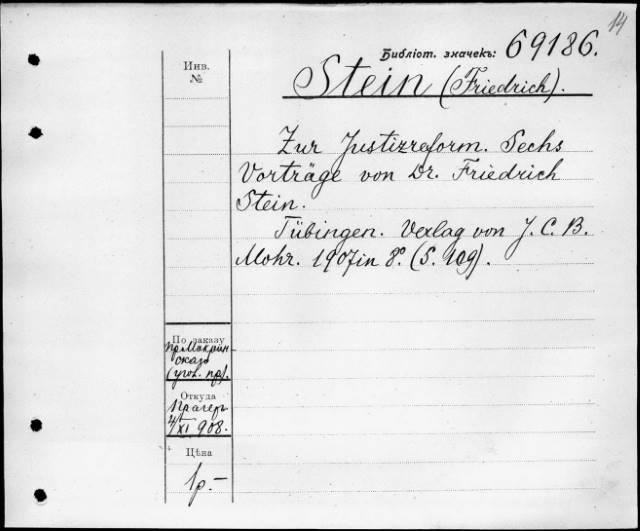 14
Библіот. значекъ: 69186.
Инв.
№
Stein (Friedrich).
Zur Justizreform. Sechs
Vorträge von Dr. Friedrich
Stein.
Tübingen. Verlag von J. C. B.
Mohr. 1907 in 8º. (S. 109).
По заказу
пр. Мокрин
скаго
(угол. пр).
Откуда
Прагер
4/XI 908.
Цѣна
1 р. –